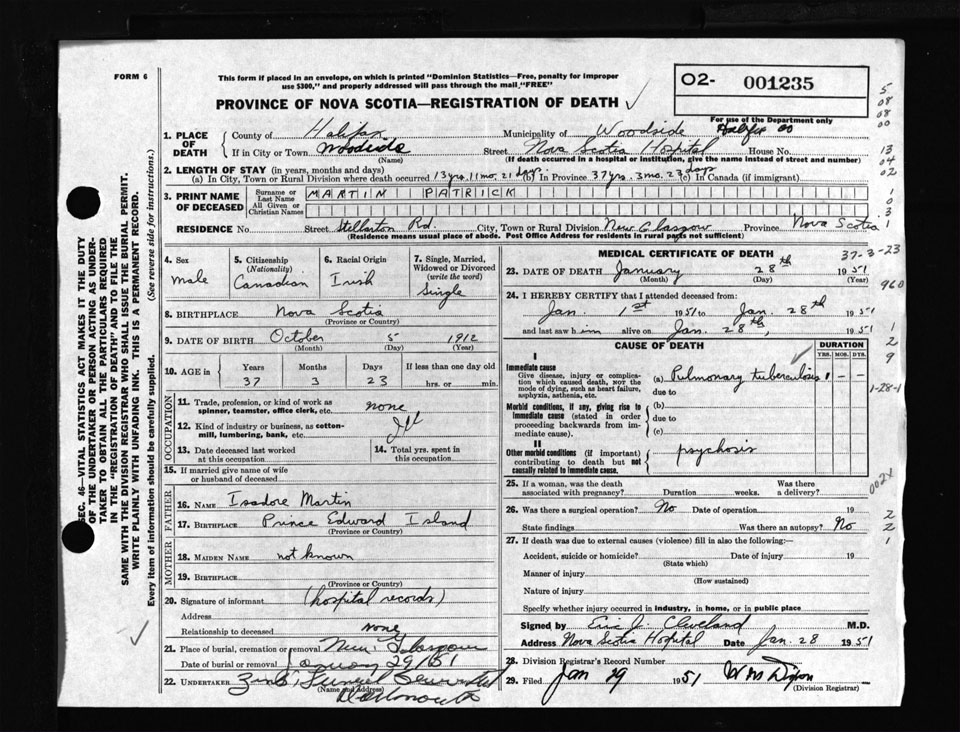 FORM 6
This form if placed in an envelope, on which is printed "Dominion Statistics—Free, penalty for improper
use $300," and properly addressed will pass through the mail "FREE"
O2- 001235
For use of the Department only
PROVINCE OF NOVA SCOTIA—REGISTRATION OF DEATH ✓
Halifax Co
1. PLACE OF DEATH County of Halifax Municipality of Woodside
If in City or Town Woodside Street Nova Scotia Hospital House No.
(Name) (If death occurred in a hospital or institution, give the name instead of street and number)
2. LENGTH OF STAY (in years, months and days)
(a) In City, Town or Rural Division where death occurred 13 yrs. 11 mo. 21 days (b) In Province 37 yrs. 3 mo. 23 days (c) In Canada (if immigrant)
3. PRINT NAME OF DECEASED Surname or Last Name MARTIN PATRICK
All Given or Christian Names
RESIDENCE No. Street Stellarton Rd. City, Town or Rural Division New Glasgow Province Nova Scotia
(Residence means usual place of abode. Post Office Address for residents in rural parts not sufficient)
4. Sex male
5. Citizenship (Nationality) Canadian
6. Racial Origin Irish
7. Single, Married, Widowed or Divorced (write the word) Single
8. BIRTHPLACE Nova Scotia
(Province or Country)
9. DATE OF BIRTH October 5 1912
(Month) (Day) (Year)
10. AGE in Years Months Days If less than one day old
37 3 23 hrs. or min.
OCCUPATION
11. Trade, profession or kind of work as spinner, teamster, office clerk, etc. none
12. Kind of industry or business, as cotton-mill, lumbering, bank, etc.
13. Date deceased last worked at this occupation
14. Total yrs. spent in this occupation
15. If married give name of wife or husband of deceased
FATHER
16. NAME Isadore Martin
17. BIRTHPLACE Prince Edward Island
(Province or Country)
MOTHER
18. MAIDEN NAME not known
19. BIRTHPLACE
(Province or Country)
20. Signature of informant (hospital records)
Address
Relationship to deceased none
21. Place of burial, cremation or removal New Glasgow
Date of burial or removal January 29/51
22. UNDERTAKER
(Name and address)
Dartmouth
MEDICAL CERTIFICATE OF DEATH
37-3-23
23. DATE OF DEATH January 28th 1951
(Month) (Day) (Year)
960
24. I HEREBY CERTIFY that I attended deceased from:
Jan. 1st 1951 to Jan. 28th 1951
and last saw him alive on Jan. 28th, 1951
CAUSE OF DEATH DURATION
YRS. MOS. DYS.
I
Immediate cause
Give disease, injury or complication which caused death, NOT the mode of dying, such as heart failure, asphyxia, asthenia, etc.
(a) Pulmonary tuberculosis 1 — —
due to
Morbid conditions, if any, giving rise to immediate cause (stated in order proceeding backwards from immediate cause).
(b)
due to
(c)
II
Other morbid conditions (if important) contributing to death but not causally related to immediate cause.
psychosis
25. If a woman, was the death associated with pregnancy? Duration weeks. Was there a delivery?
26. Was there a surgical operation? No Date of operation 19
State findings Was there an autopsy? No
27. If death was due to external causes (violence) fill in also the following:—
Accident, suicide or homicide? Date of injury 19
(State which)
Manner of injury
(How sustained)
Nature of injury
Specify whether injury occurred in industry, in home, or in public place
Signed by Eric J. Cleveland M.D.
Address Nova Scotia Hospital Date Jan. 28 1951
28. Division Registrar's Record Number
29. Filed Jan 29 1951
(Division Registrar)
SEC. 46—VITAL STATISTICS ACT MAKES IT THE DUTY
OF THE UNDERTAKER OR PERSON ACTING AS UNDER-
TAKER TO OBTAIN ALL THE PARTICULARS REQUIRED
IN THE "REGISTRATION OF DEATH" AND TO FILE THE
SAME WITH THE DIVISION REGISTRAR WHO SHALL ISSUE THE BURIAL PERMIT.
WRITE PLAINLY WITH UNFADING INK. THIS IS A PERMANENT RECORD.
Every item of information should be carefully supplied. (See reverse side for instructions.)
5
08
08
00
13
04
02
1
0
3
1
1
2
9
1-28-1
2
2
1